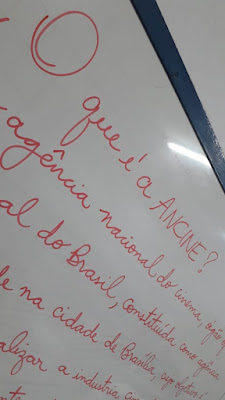 O que é a ANCINE?
agência nacional do cinema, órgão
al do Brasil, constituída como agência
de na cidade de Brasília, cujo objetivo é
alizar a industria